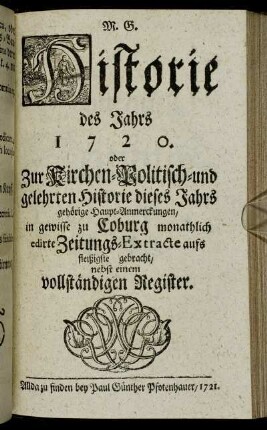 M. G.
Historie
des Jahrs
1720.
oder
Zur Kirchen-Politisch-und
gelehrten Historie dieses Jahrs
gehörige Haupt-Anmerckungen/
in gewisse zu Coburg monathlich
edirte Zeitungs-Extracte aufs
fleißigste gebracht/
nebst einem
vollständigen Register.
Allda zu finden bey Paul Günther Pfotenhauer/1721.